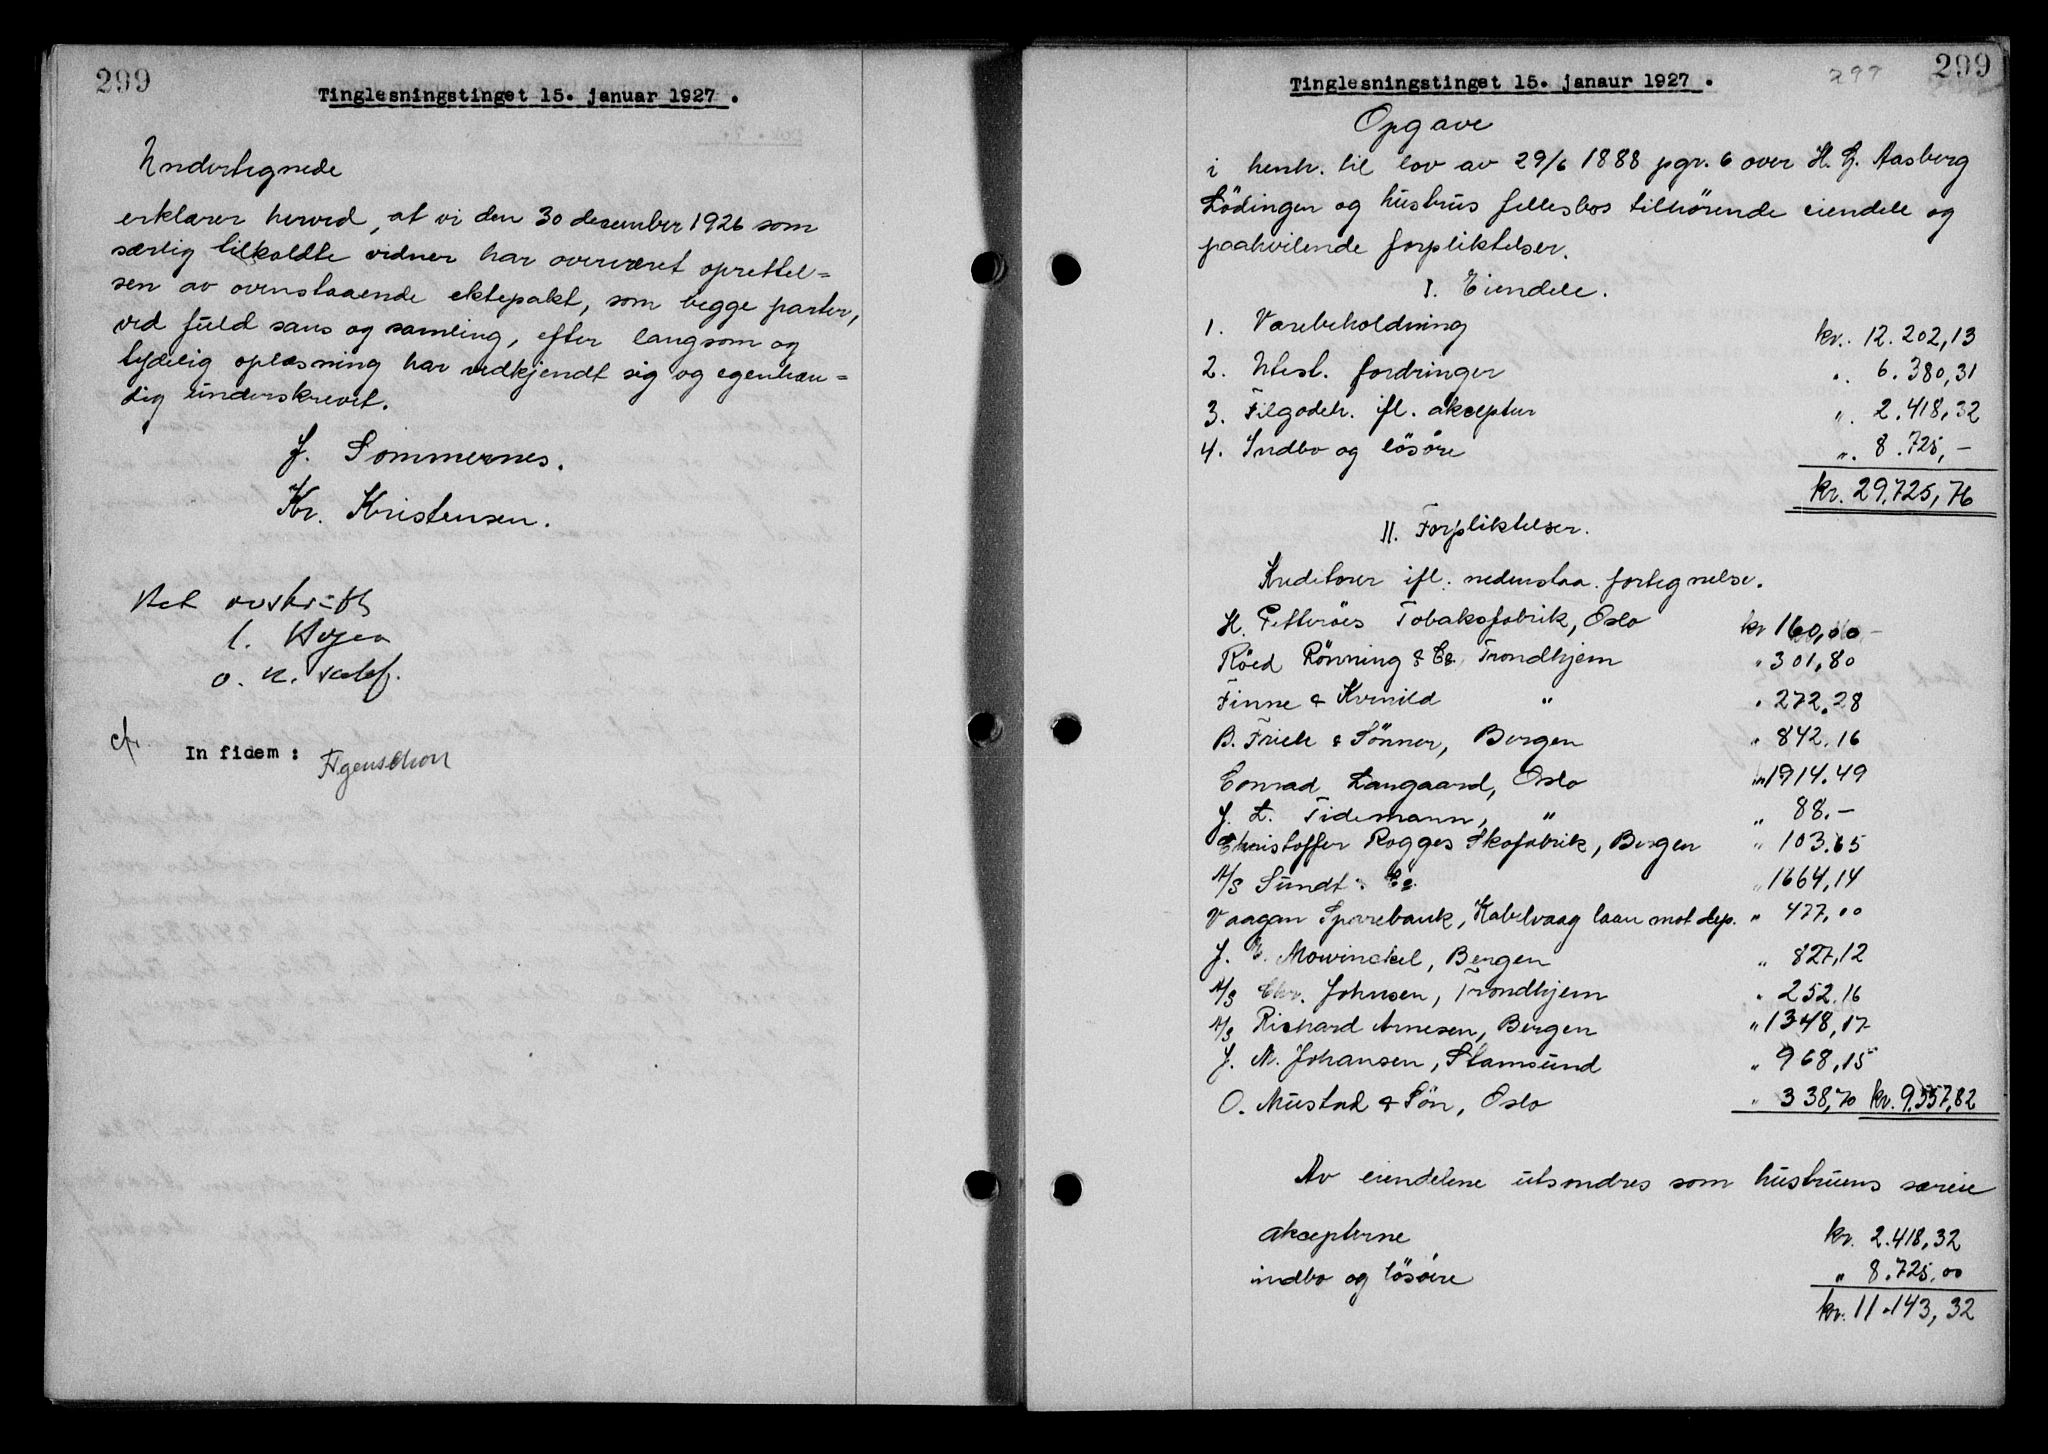 299
Tinglesningstinget 15. januar 1927.
Undertegnede
erklærer herved, at vi den 30 desember 1926 som
særlig tilkaldte vidner har overværet oprettel=
sen av ovenstaaende ektepakt, som begge parter,
ved fuld sans og samling, efter langsom og
tydelig oplæsning har vedkjendt sig og egenhæn=
dig underskrevet.
J. Sommernes.
Kr. Kristensen.
Ret avskrift
o. r. sakf.
cfr.
In fidem :
299
299
Tinglesningstinget 15. janaur 1927.
Opgave
i henh. til lov av 29/6 1888 pgr. 6 over H. G. Aasberg
Lödingen og hustrus fellesbos tilhörende eiendele og
paahvilende forpliktelser.
I. Eiendele.
1. Varebeholdning kr. 12.202,13
2. Utest. fordringer „. 6.380,31
3. Tilgodeh. ifl. akceptur „. 2.418,32
4. Indbo og lösöre „. 8.725,-
kr. 29.725,76
II. Forpliktelser.
Kreditorer ifl. nedenstaa. fortegnelse.
H. Petteröes Tobaksfabrik, Oslo kr 160,00
Röed Rönning & Co, Trondhjem „ 301,80
Finne & Kvenild „ „ 272.28
B. Friele & Sönner, Bergen „ 842.16
Conrad Langaard, Oslo „ 1914.49
J. L. Tidemann, „ „ 88.-
Christoffer Rogges Skofabrik, Bergen „ 103.65
A/S Sundt & Co. „ 1664,14
Vaagan Sparebank, Kabelvaag laan mot dep. „ 477,00
J. E. Mowinckel, Bergen „ 827,12
A/S Chr. Johnsen, Trondhjem „ 252.16
A/S Richard Arnesen, Bergen „ 1348,17
J. M. Johansen, Stamsund „ 968,15
O. Mustad & Sön, Oslo „ 338,70 kr. 9.557,82
Av eiendelene utsondres som hustruens særeie
akcepterne kr. 2.418,32
indbo og lösöire „ 8.725.00
kr. 11.143,32